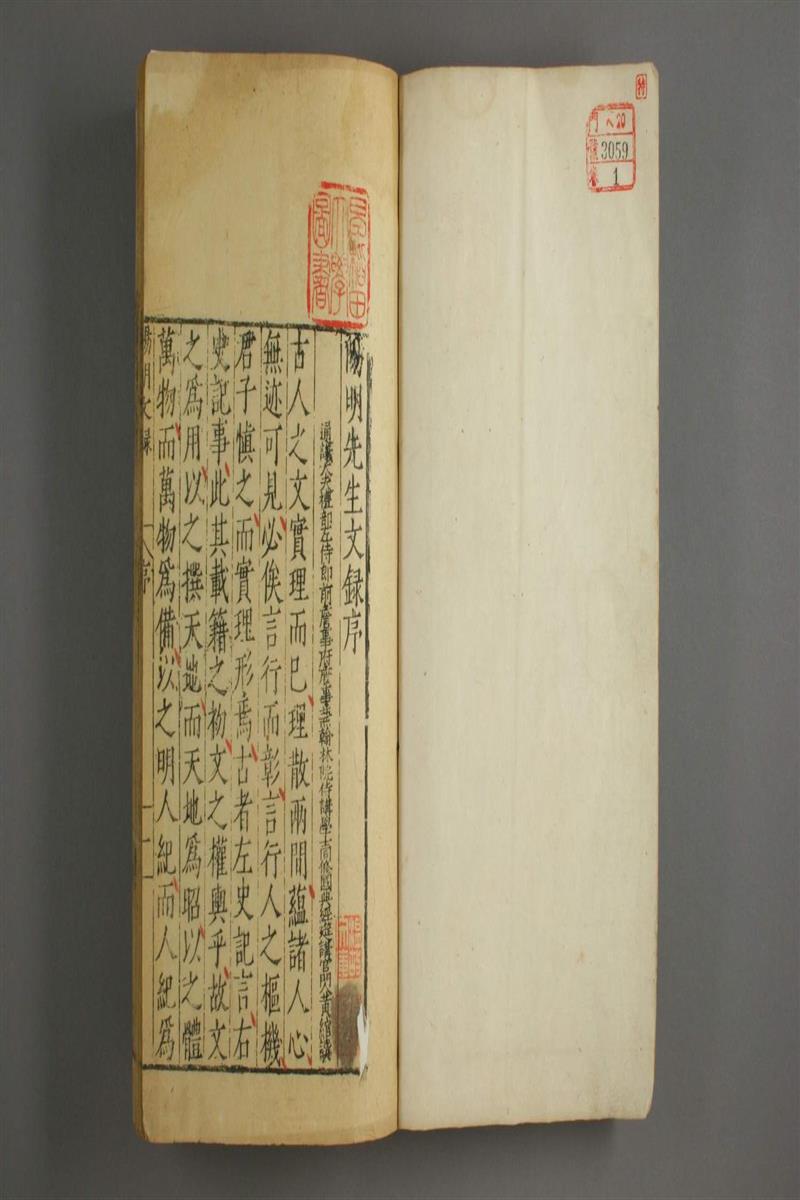 特
門 ヘ20
號 3059
卷 1
早稲田大學圖書
陽明先生文録序
通議大夫禮部左侍郎前詹事府府事兼翰林院侍講學士同脩國典經筵講官門人黃綰譔
古人之文實理而已理散兩間蘊諸人心
無迹可見必俟言行而彰言行人之樞機
君子慎之而實理形焉古者左史記言右
史記事此其載籍之初文之權輿乎故文
之爲用以之撰天地而天地爲昭以之體
萬物而萬物爲備以之明人紀而人紀爲
陽明文録 序 一